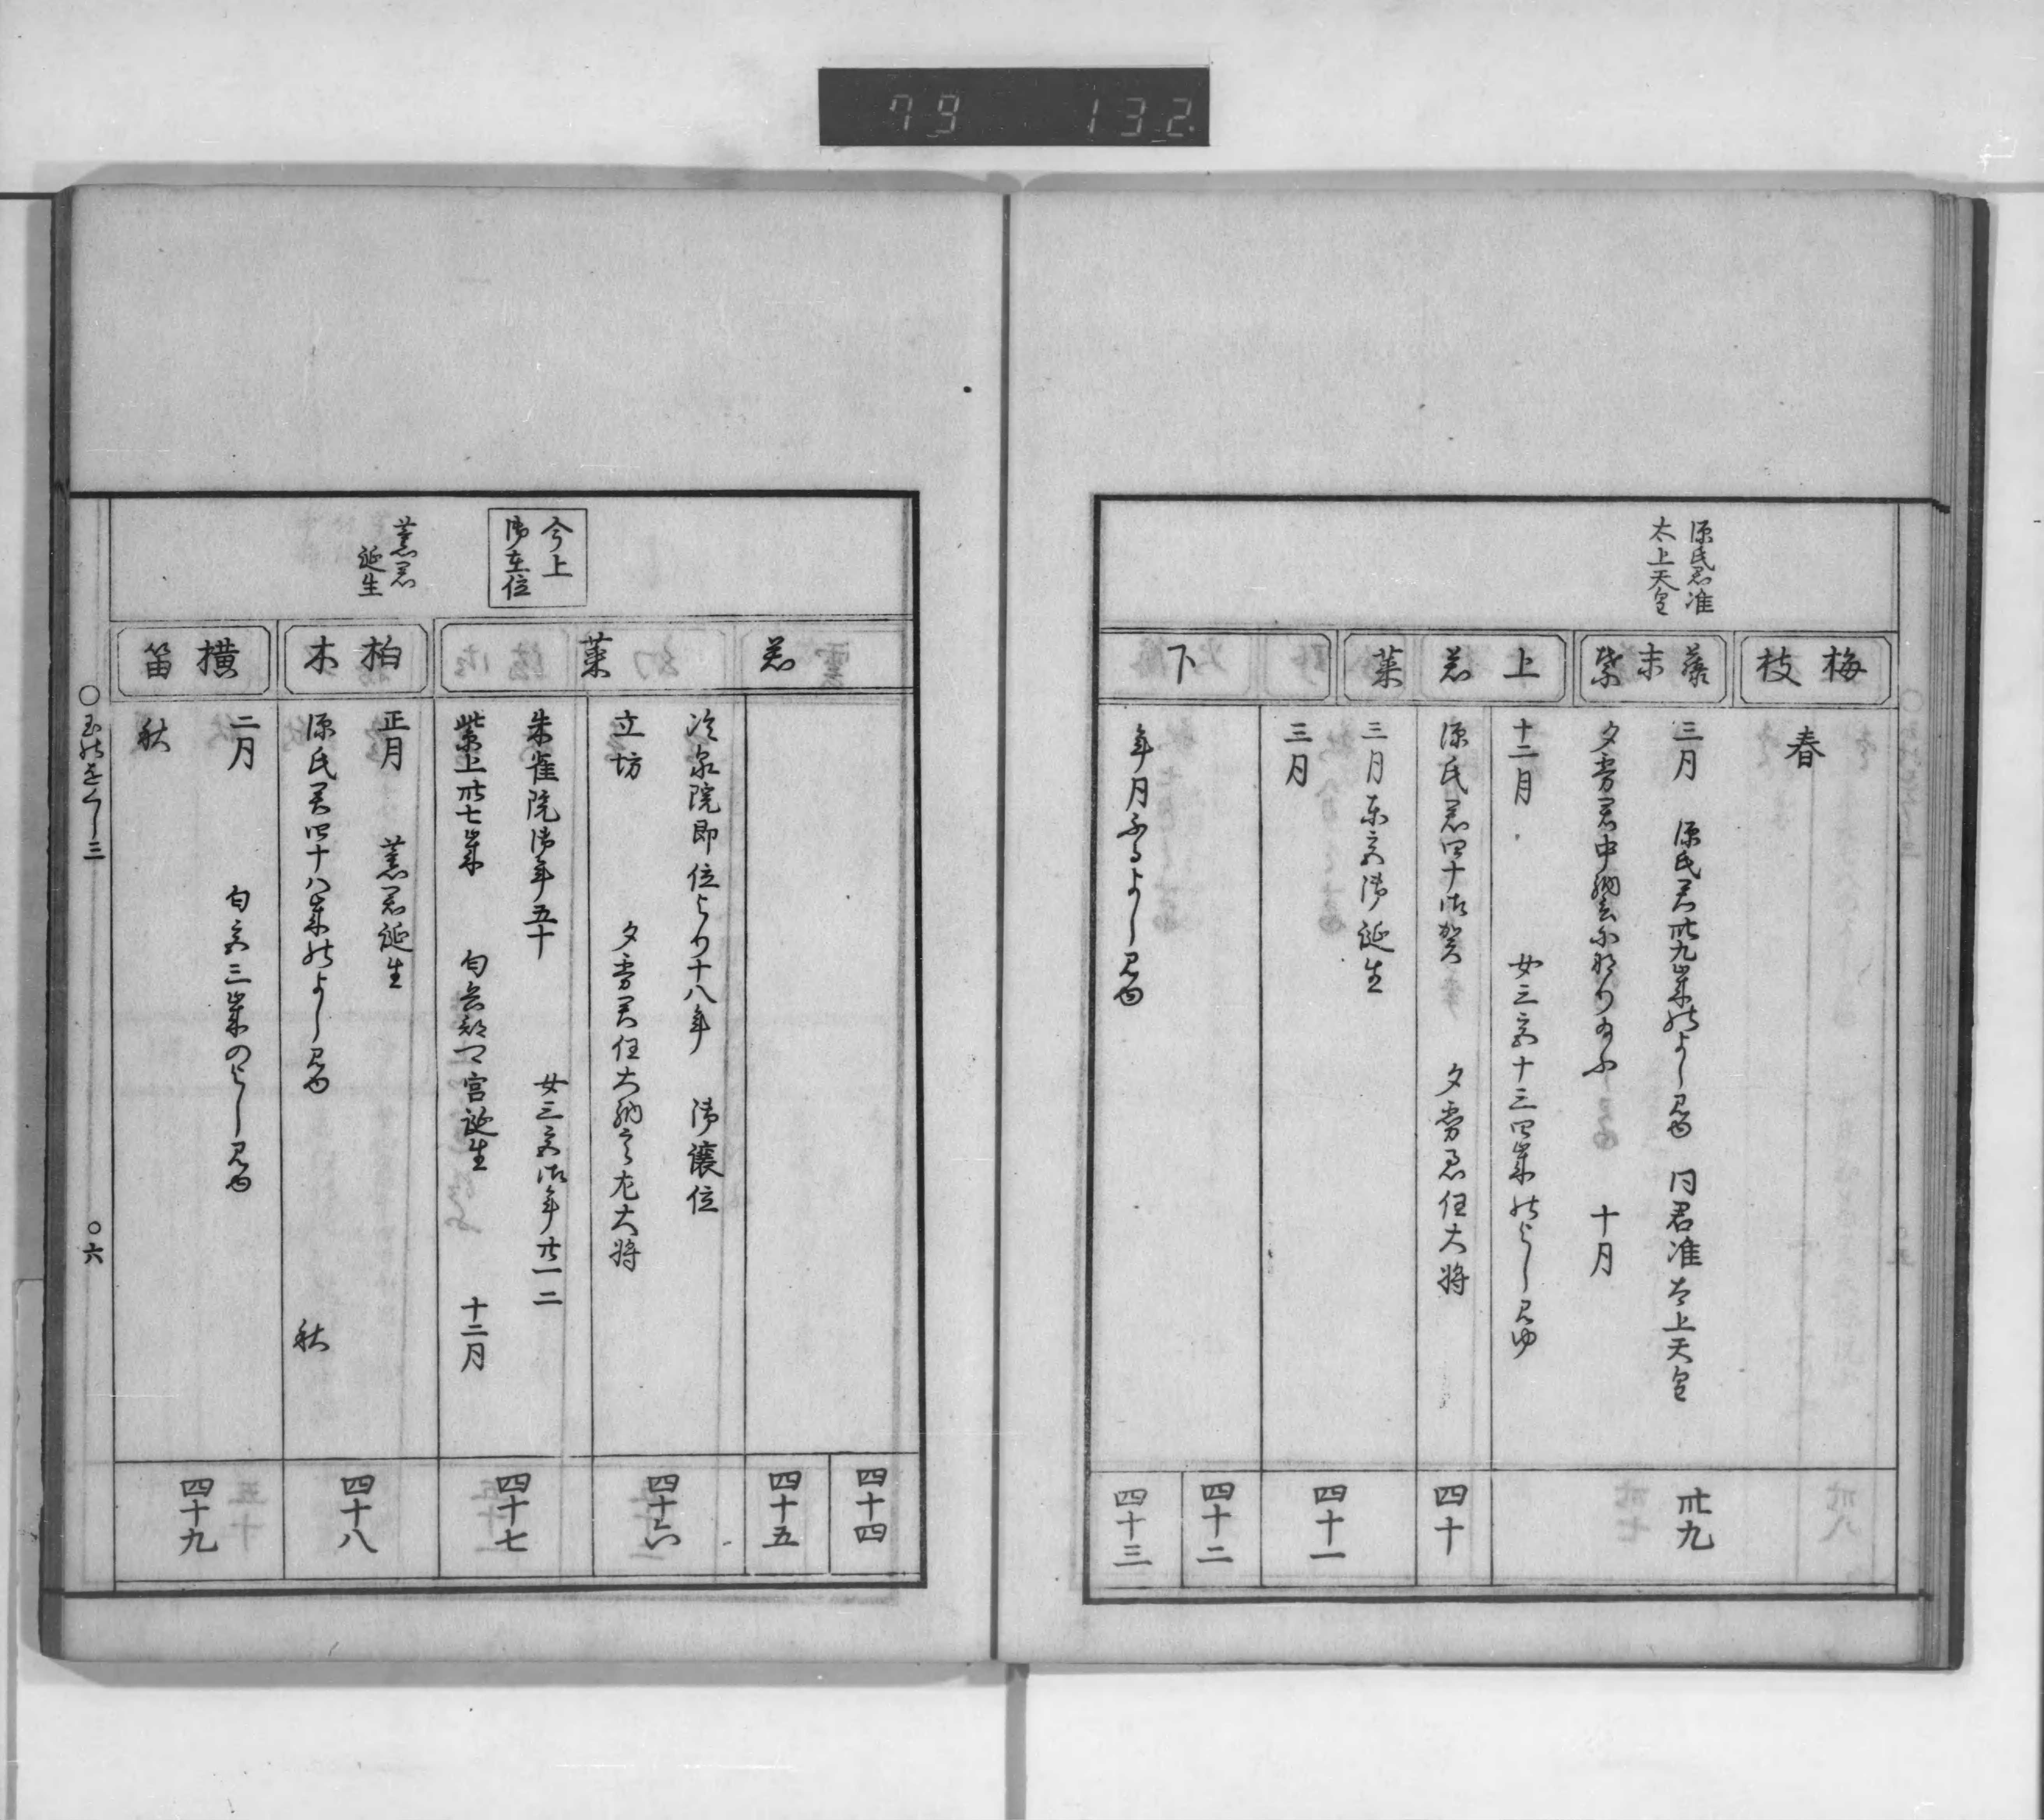 79 132
源氏君准
太上天皇
梅枝
藤末紫
上若菜
下
春
三月 源氏君卅九歳のよし見ゆ 同君准太上天皇
夕霧君中納言になり給ふ 十月
十二月 女三宮十三四歳のよし見ゆ
源氏君四十御賀 夕霧君任大将
三月東宮御誕生
三月
年月ふるよし見ゆ
卅九
四十
四十一
四十二
四十三
今上
御在位
薫君
誕生
若
菜
柏木
横笛
冷泉院即位より十八年 御譲位
立坊 夕霧君任大納言左大将
朱雀院御年五十 女三宮御年廿一二
紫上卅七歳 匂兵部卿宮誕生 十二月
正月 薫君誕生
源氏君四十八歳のよし見ゆ 秋
二月 匂宮三歳のよし見ゆ
秋
四十四
四十五
四十六
四十七
四十八
四十九
○玉のをぐし三 ○六